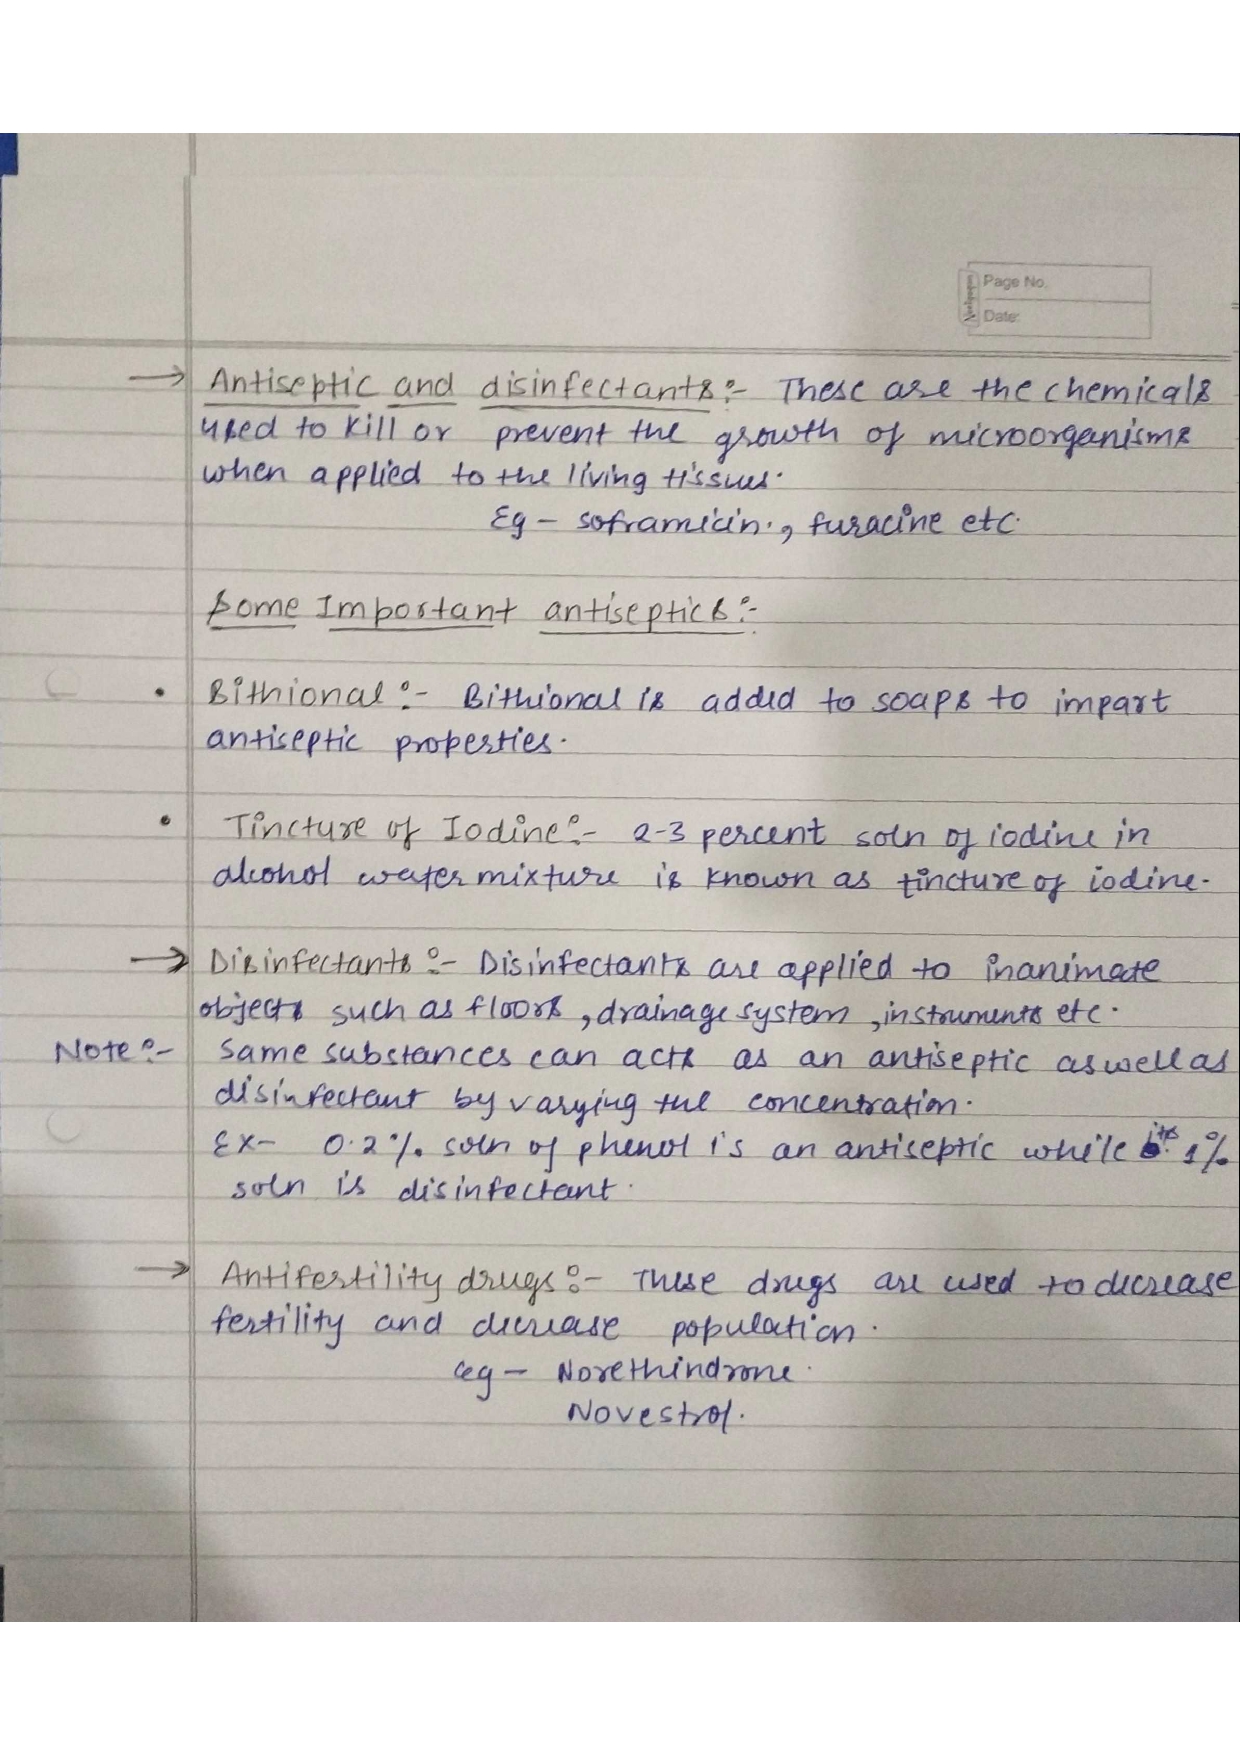 Page No.
Date:
→ Antiseptic and disinfectants:- These are the chemicals
used to kill or prevent the growth of microorganisms
when applied to the living tissues.
Eg - soframicin., furacine etc.
Some Important antiseptics:-
• Bithional:- Bithional is added to soaps to impart
antiseptic properties.
• Tincture of Iodine:- 2-3 percent soln of iodine in
alcohol water mixture is known as tincture of iodine.
→ Disinfectants:- Disinfectants are applied to inanimate
objects such as floors, drainage system, instruments etc.
Note:- Same substances can acts as an antiseptic as well as
disinfectant by varying the concentration.
Ex- 0.2%. soln of phenol is an antiseptic while its 1%
soln is disinfectant.
→ Antifertility drugs:- These drugs are used to decrease
fertility and decrease population.
eg - Norethindrone.
Novestrol.